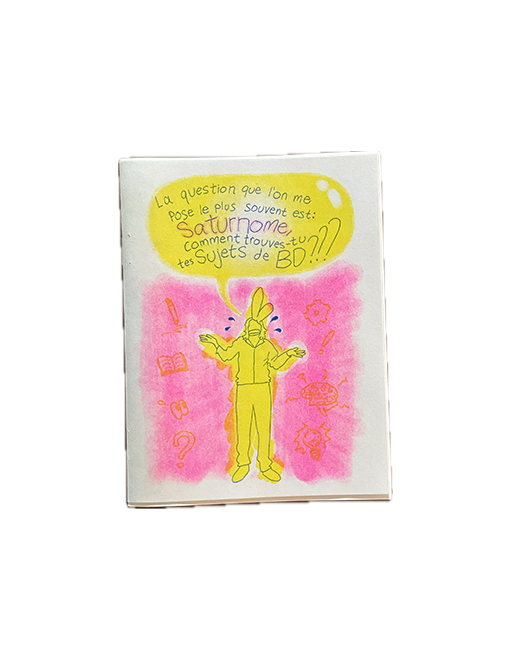 La question que l'on me
pose le plus souvent est:
Saturnome,
comment trouves-tu
tes sujets de BD???
?